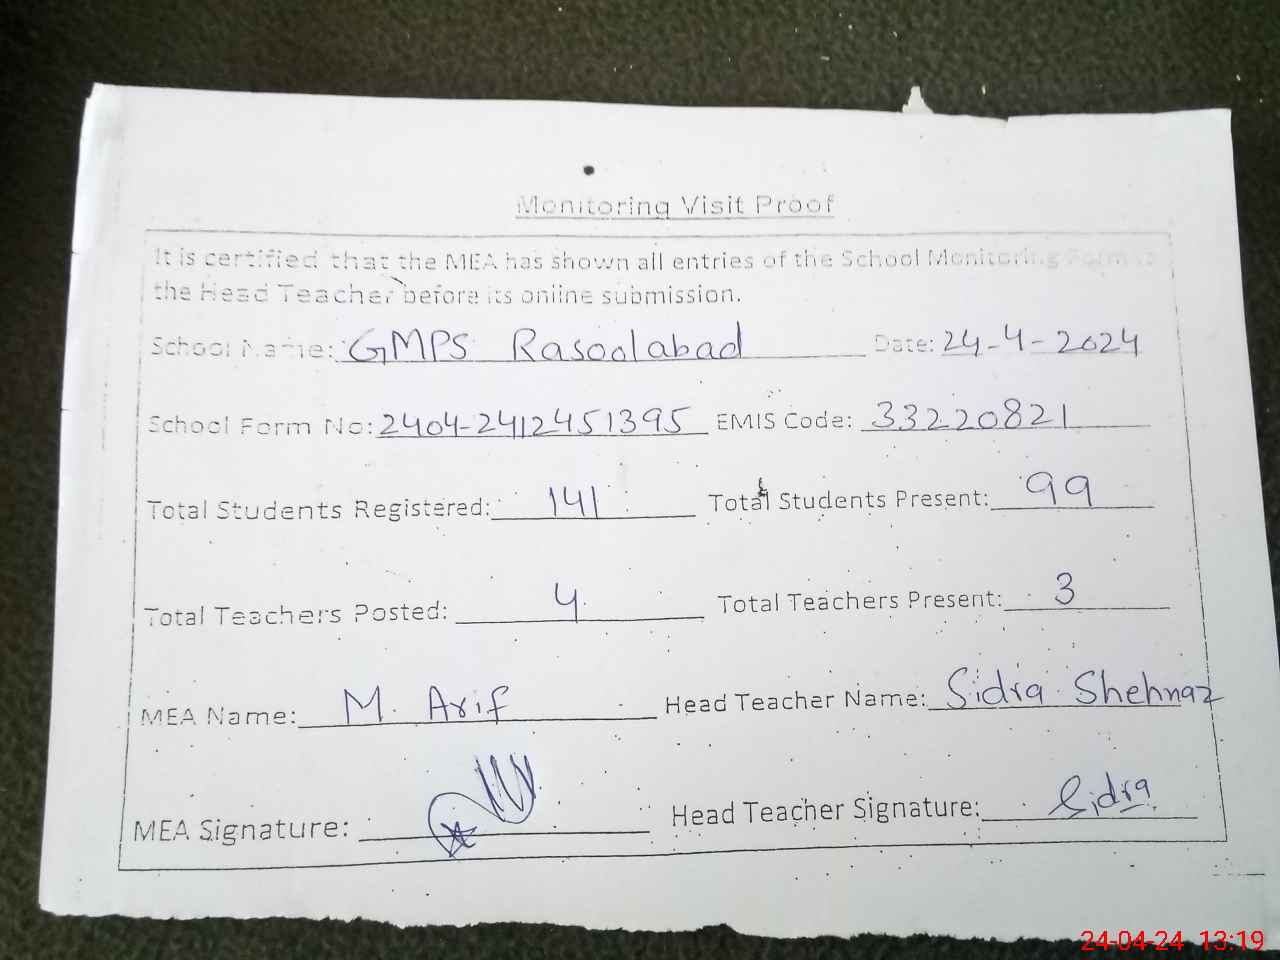 Monitoring Visit Proof
It is certified that the MEA has shown all entries of the School Monitoring Form to
the Head Teacher before its online submission.
School Name: GMPS Rasoolabad Date: 24-4-2024
School Form No: 2404-2412451395 EMIS Code: 33220821
Total Students Registered: 141 Total Students Present: 99
Total Teachers Posted: 4 Total Teachers Present: 3
MEA Name: M. Arif Head Teacher Name: Sidra Shehnaz
MEA Signature: Head Teacher Signature: Sidra
24-04-24 13:19